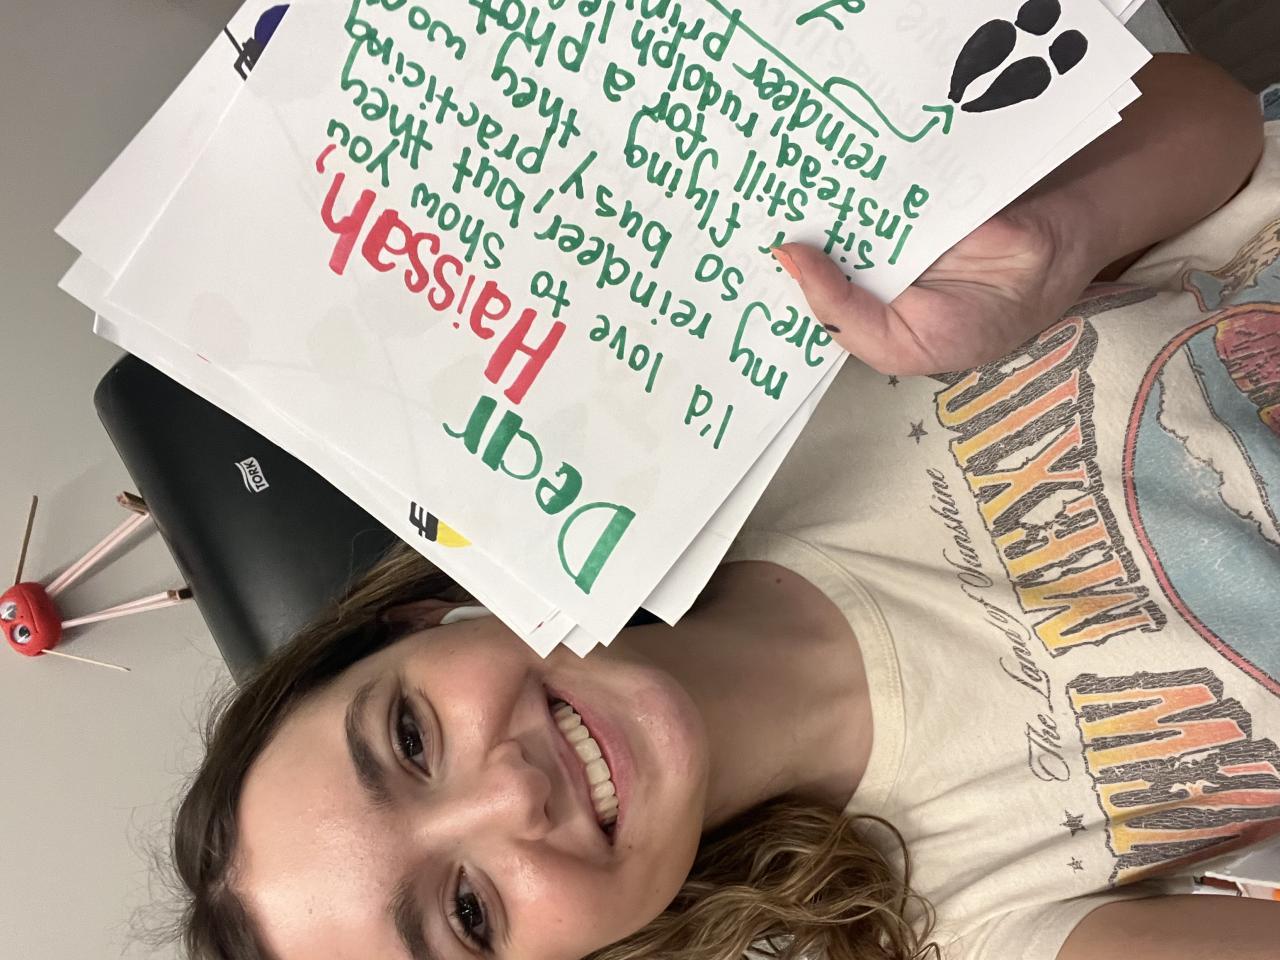 Dear Haissah,
I'd love to show you
my reindeer, but they
are so busy practicing
flying they
sit still for a
Instead, rudolph
a reindeer
TORK
The Land of Sunshine
NEW MEXICO